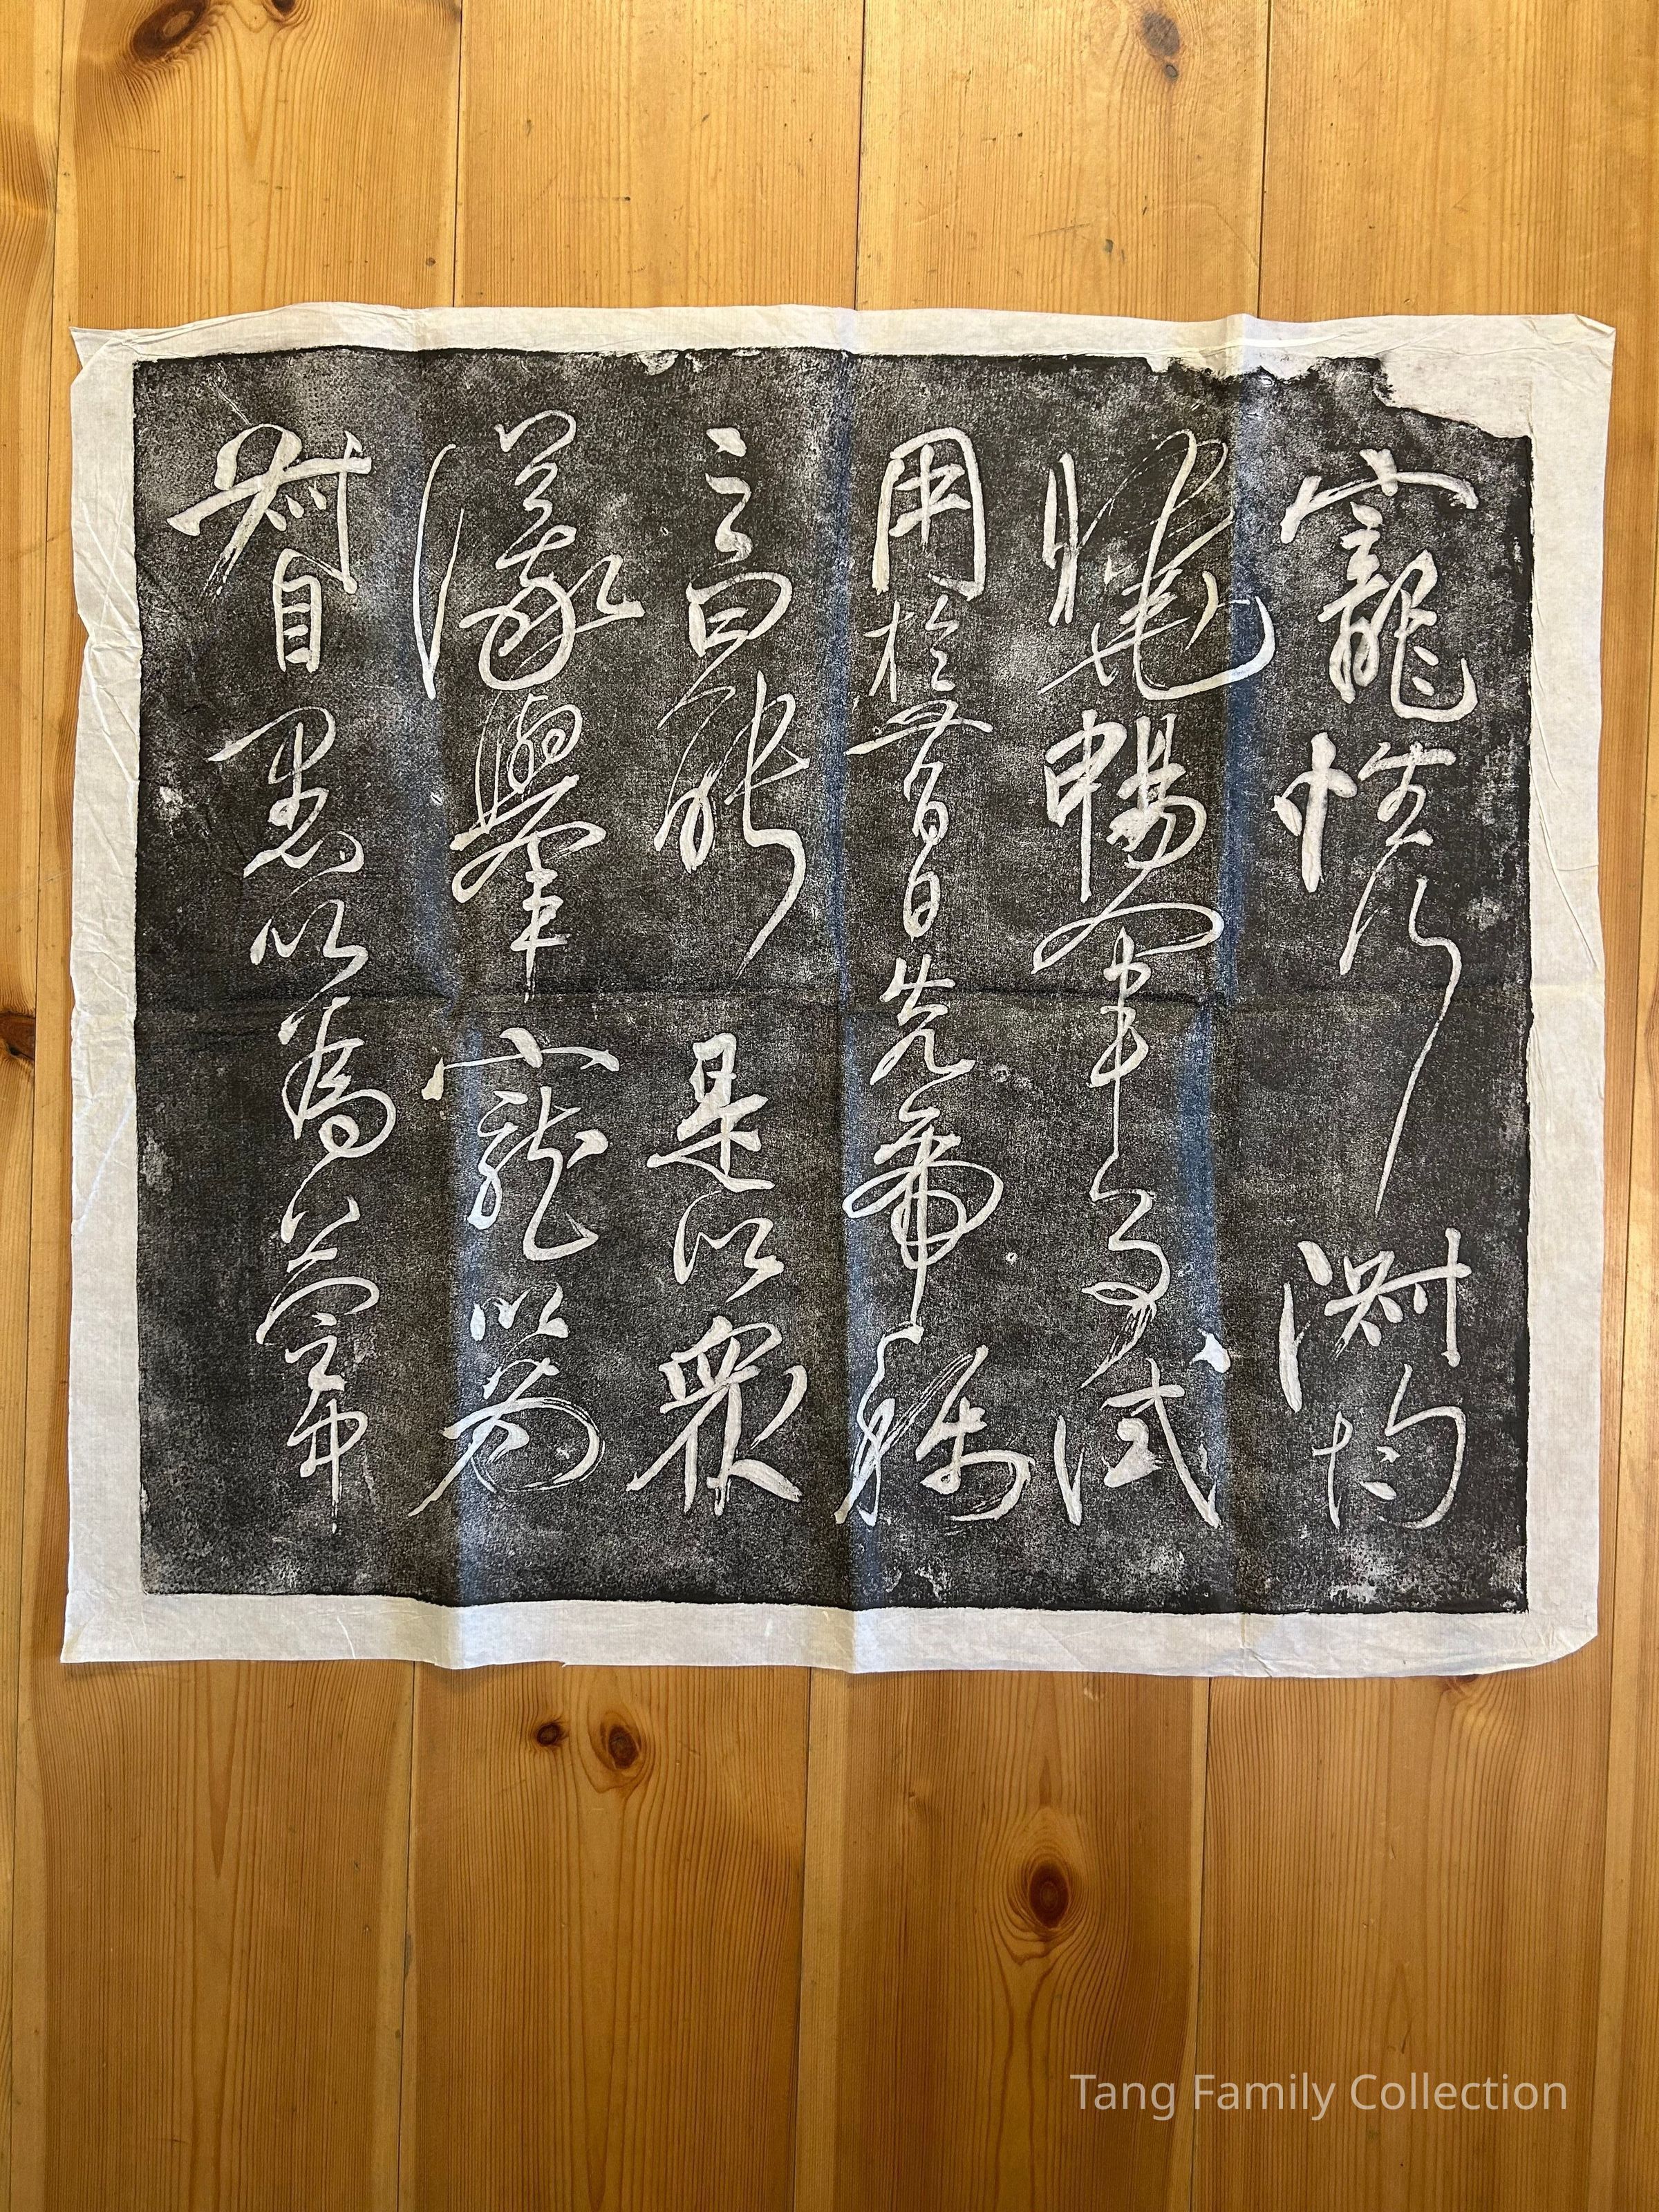 寵性行淑均
曉暢軍事試
用於昔日先帝稱
之曰能是以眾
議舉寵以為
督愚以為營中
Tang Family Collection